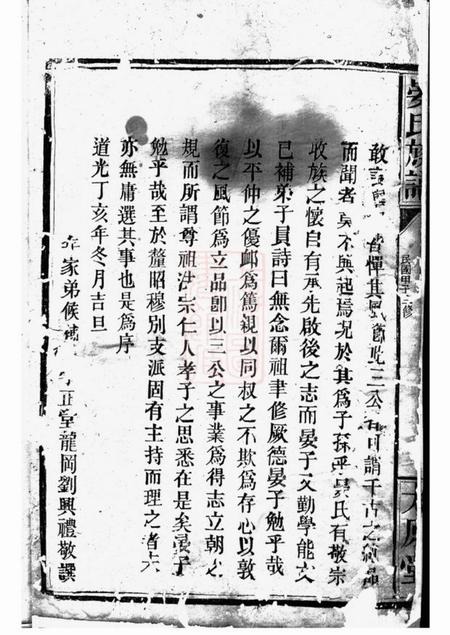 敢 憚其風節此三公 可謂千古之
而聞者莫不興起焉況於其為子孫乎晏氏有敬宗
收族之懷自有承先啟後之志而晏子文勤學能文
已補弟子員詩曰無念爾祖聿修厥德晏子勉乎哉
以平仲之優邺為篤親以同叔之不欺為存心以敦
復之風節為立品卽以三公之事業為得志立朝之
規而所謂尊祖法宗仁人孝子之思悉在是矣晏子
勉乎哉至於釐昭穆別支派固有主持而理之者亦
亦無庸選其事也是為序
道光丁亥年冬月吉旦
家弟候 正堂龍岡劉興禮敬譔
晏氏族譜
民國 修
堂